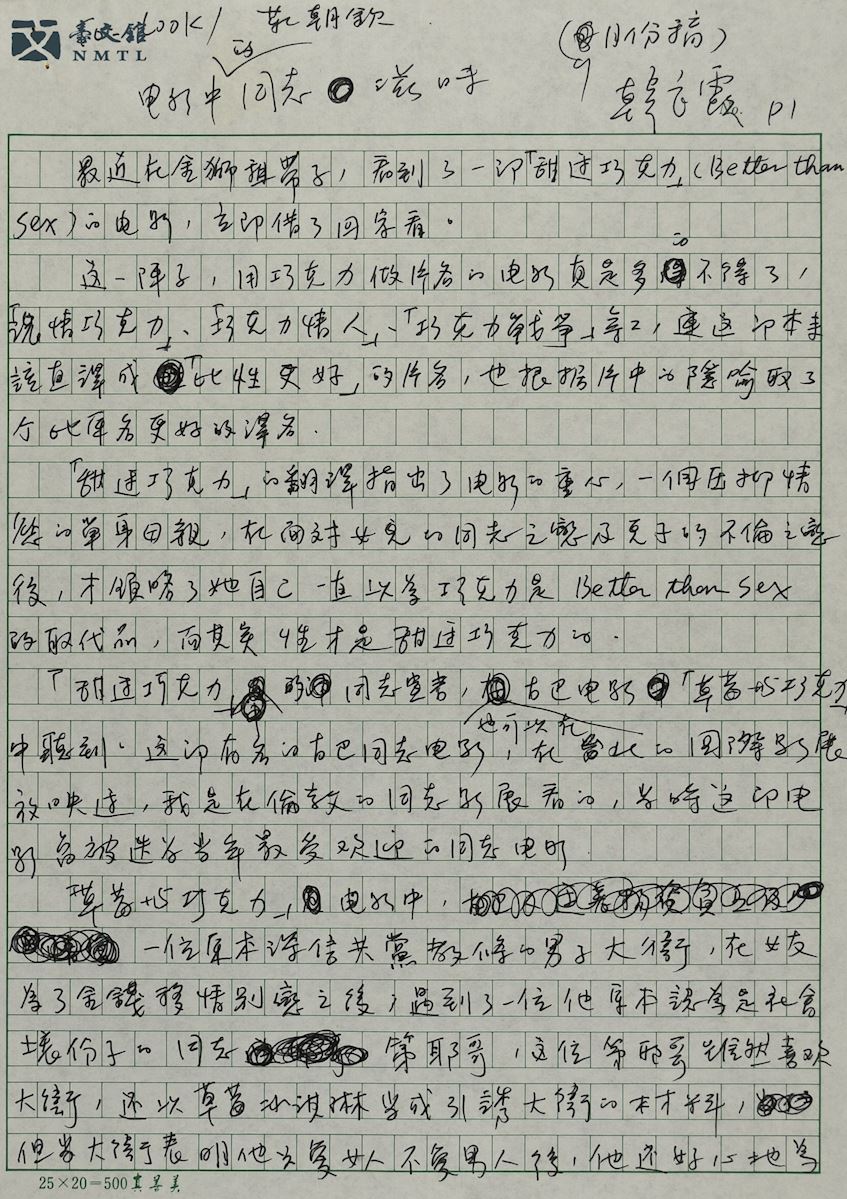 臺文館
NMTL
LOOK/ 莊朝欽
(9月份稿)
电影中的同志滋味
韓良露 P1
最近在金獅租帶子，看到了一部「甜过巧克力」(Better than
sex)的电影，立即借了回家看。
这一陣子，用巧克力做片名的电影真是多的不得了，
「巧克力」、「巧克力情人」、「巧克力戰爭」等等，連这部本来
該直譯成「比性更好」的片名，也根据片中的隱喻取了
个比原名更好的譯名.
「甜过巧克力」的翻譯指出了电影的重心，一個压抑情
慾的單身母親，在面对女兒的同志之戀及兒子的不倫之戀
後，才領略了她自己一直以為巧克力是 Better than sex
的取代品，而其实性才是甜过巧克力的.
「甜过巧克力」的同志宣言，也可以在古巴电影「草莓与巧克力」
中聽到. 这部有名的古巴同志电影，在台北的国際影展
放映过，我是在倫敦的同志影展看的，当時这部电
影曾被选为当年最受欢迎的同志电影.
「草莓与巧克力」电影中，
一位原本深信共黨教條的男子大衛，在女友
為了金錢移情別戀之後，遇到了一位他原本認為是社會
壞份子的同志第耶哥，这位第耶哥虽然喜欢
大衛，还以草莓冰淇淋当成引誘大衛的材料，
但当大衛表明他只愛女人不愛男人後，他还好心地为
25×20=500 真善美